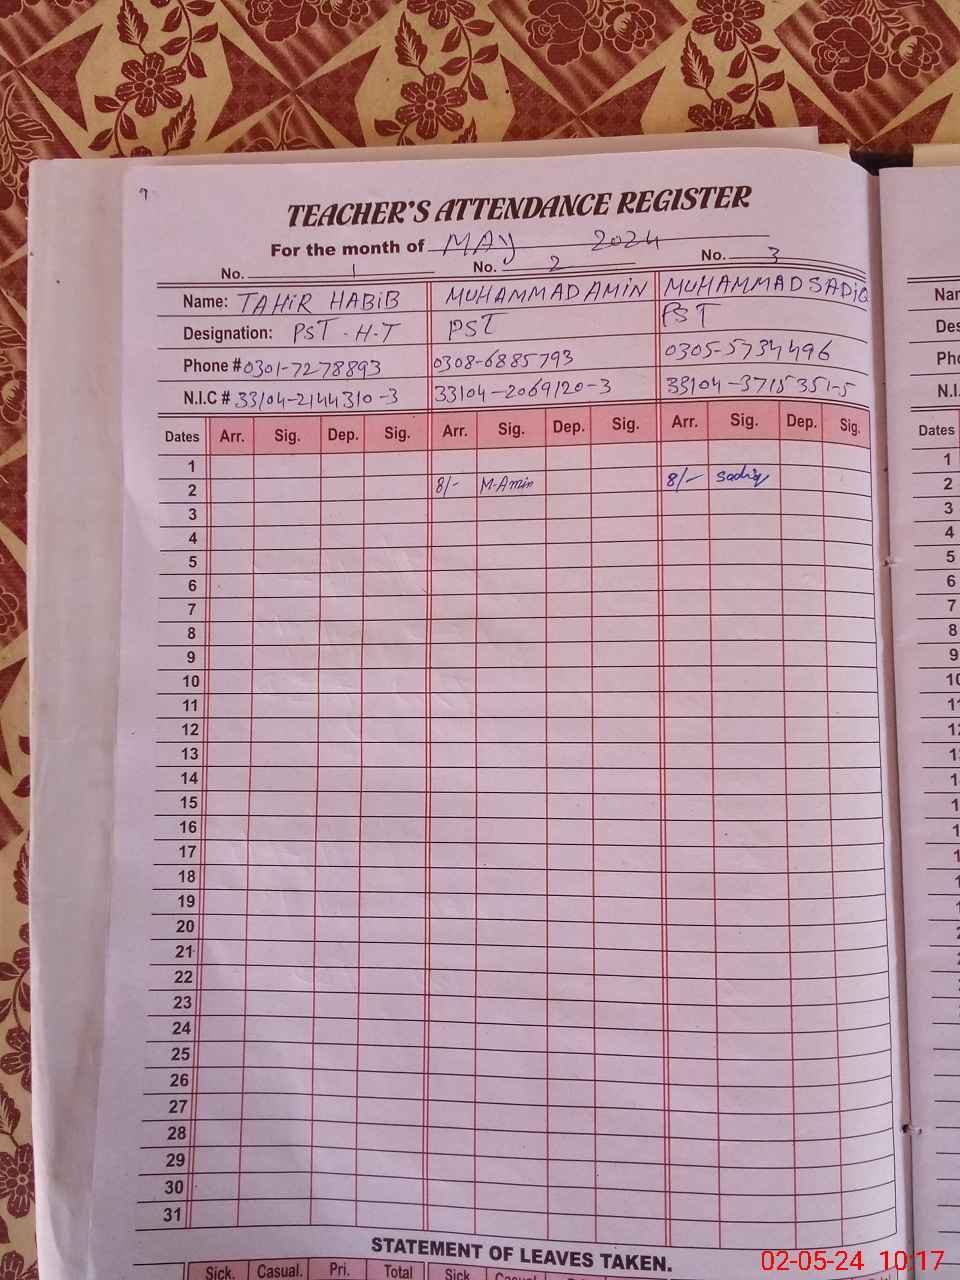 9
TEACHER'S ATTENDANCE REGISTER
For the month of MAY 2024
No. 1 No. 2 No. 3
Name: TAHIR HABIB MUHAMMAD AMIN MUHAMMAD SADIQ
Designation: PST - H-T PST PST
Phone # 0301-7278893 0308-6885793 0305-5734496
N.I.C # 33104-2144310-3 33104-2069120-3 33104-3715351-5
Dates Arr. Sig. Dep. Sig. Arr. Sig. Dep. Sig. Arr. Sig. Dep. Sig. Dates
1 1
2 8/- M-Amin 8/- Sadiq 2
3 3
4 4
5 5
6 6
7 7
8 8
9 9
10 10
11
12
13
14
15
16
17
18
19
20
21
22
23
24
25
26
27
28
29
30
31
STATEMENT OF LEAVES TAKEN.
Sick. Casual. Pri. Total Sick
02-05-24 10:17